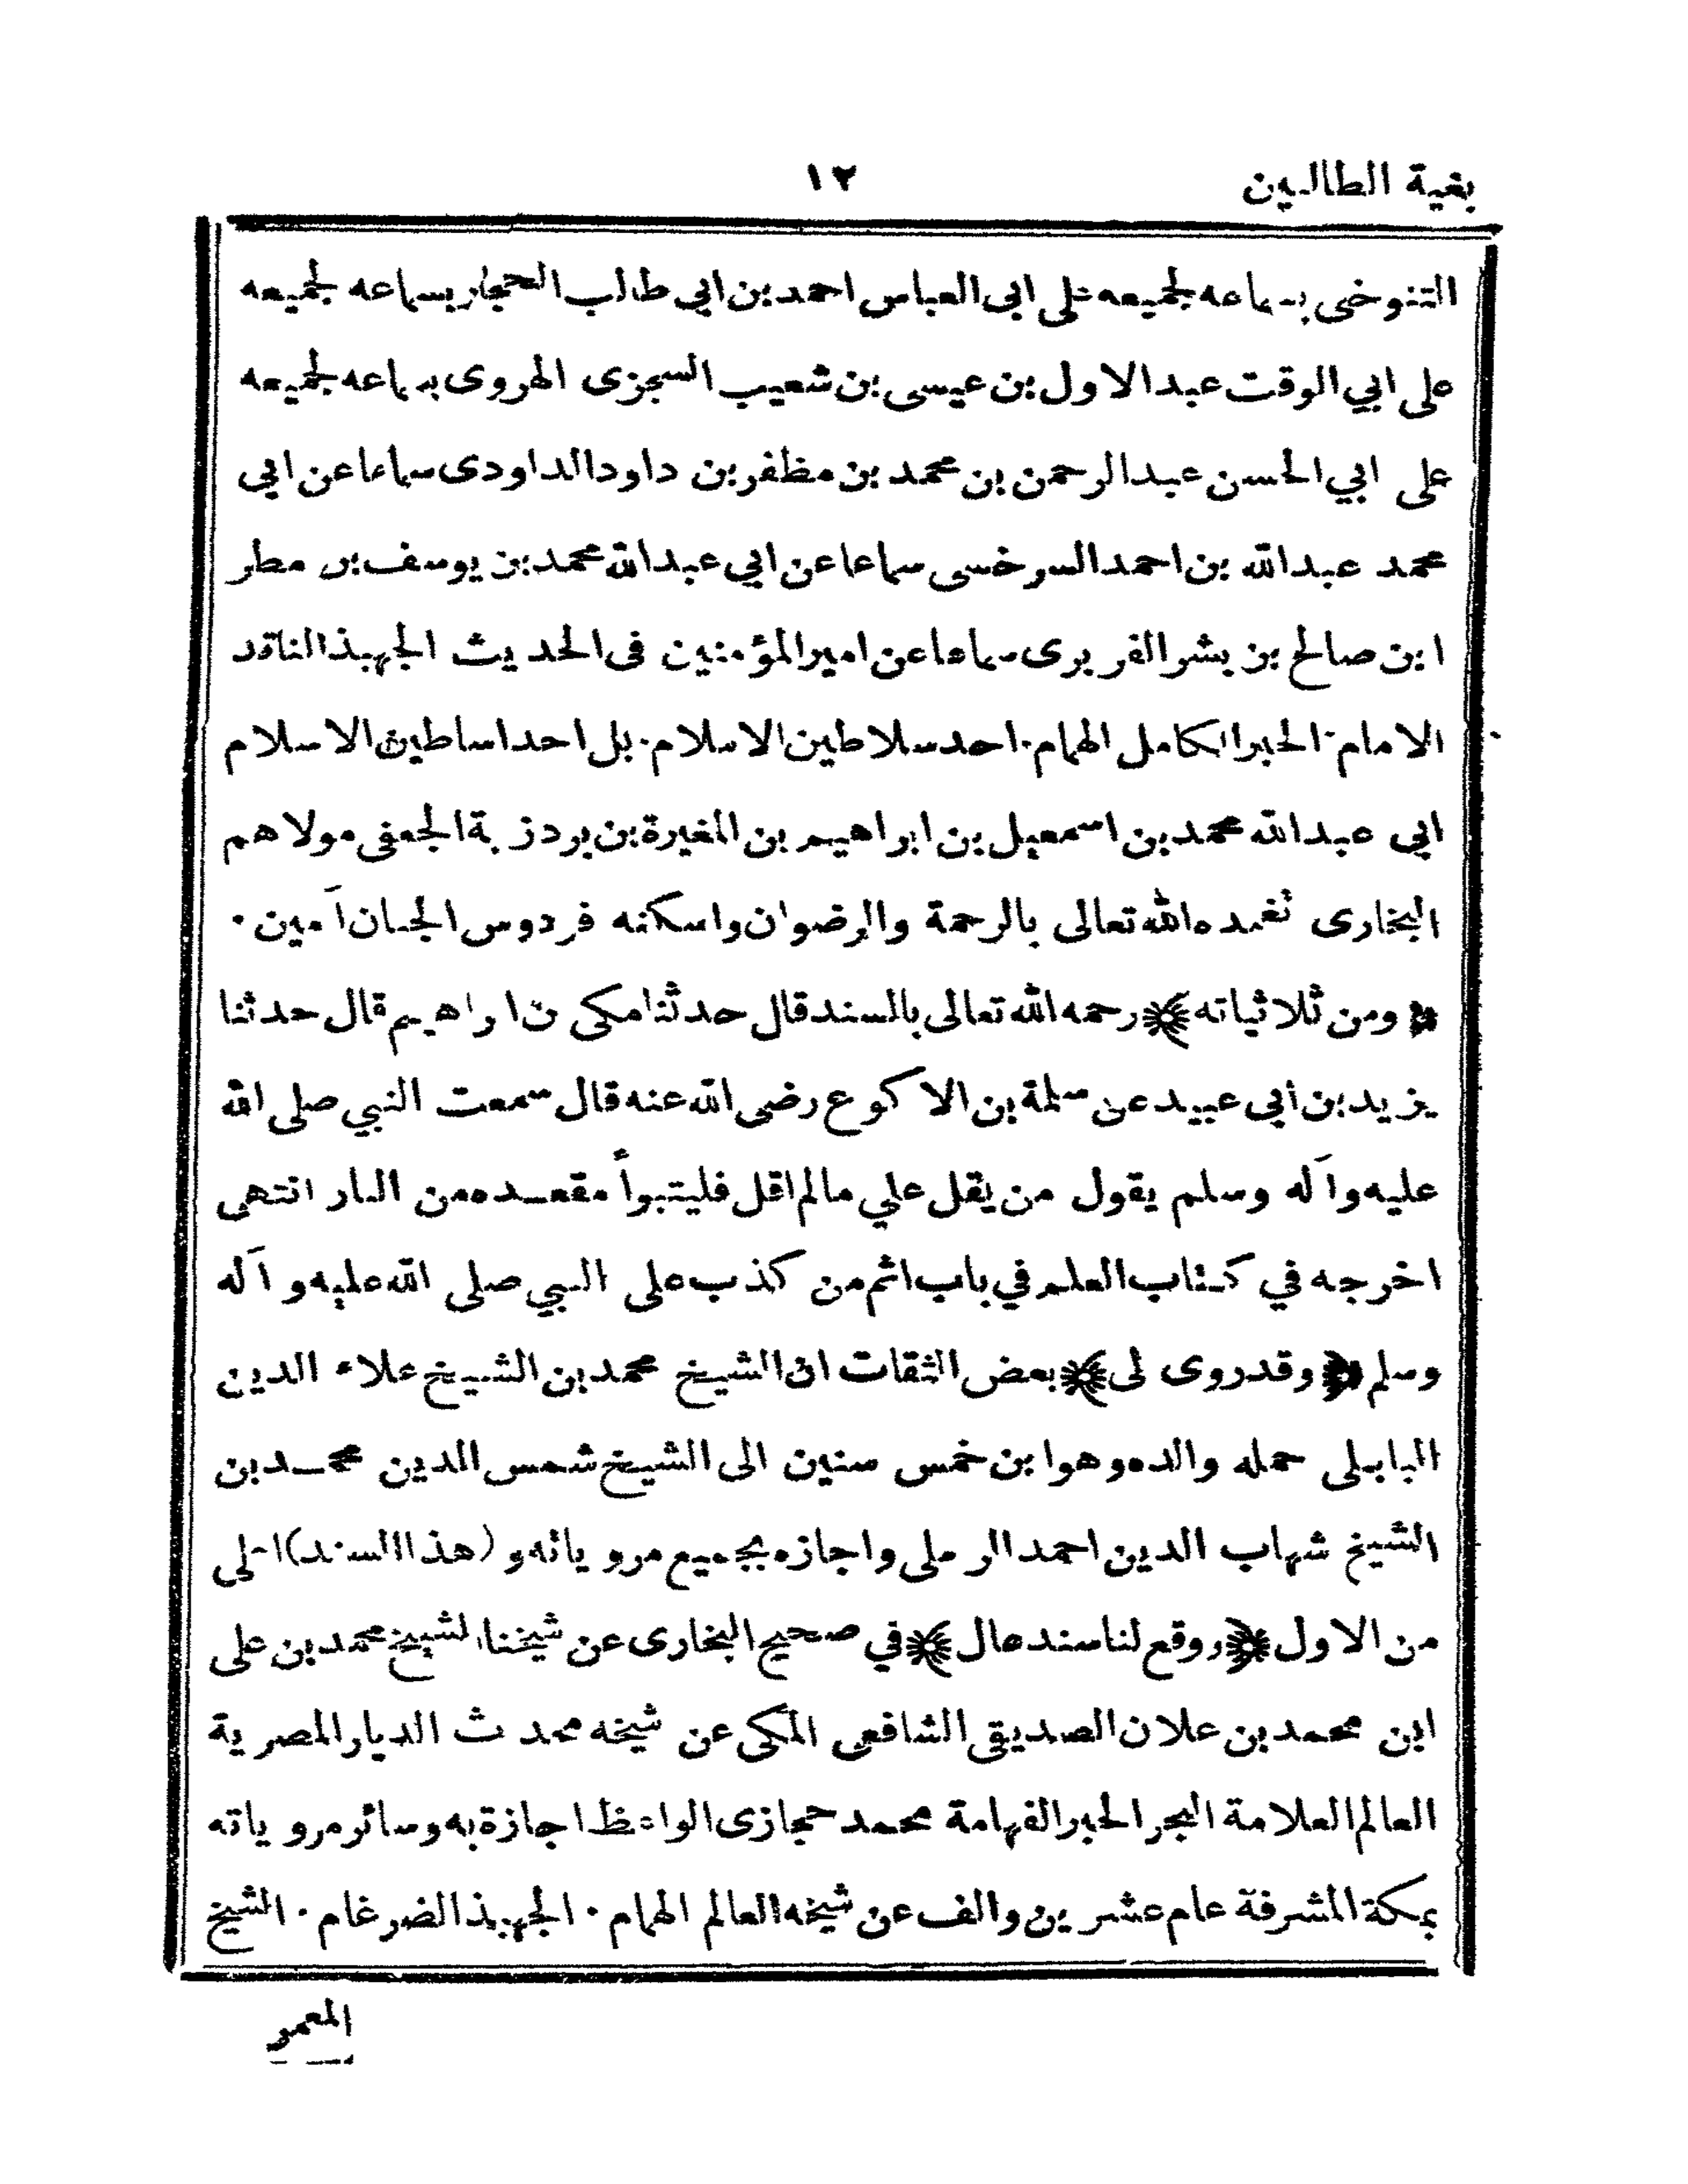 بغية الطالبين
١٢
التنوخى بسماعه لجميعه على ابى العباس احمد بن ابي طالب الحجار بسماعه لجميعه
على ابي الوقت عبد الاول بن عيسى بن شعيب السجزى الهروى بسماعه لجميعه
على ابي الحسن عبد الرحمن بن محمد بن مظفر بن داود الداودى سماعا عن ابي
محمد عبد الله بن احمد السرخسى سماعا عن ابي عبد الله محمد بن يوسف بن مطر
ابن صالح بن بشر الفربرى سماعا عن امير المؤمنين فى الحديث الجهبذ الناقد
الامام · الحبر الكامل الهمام · احد سلاطين الاسلام · بل احد اساطين الاسلام
ابي عبد الله محمد بن اسمعيل بن ابراهيم بن المغيرة بن بردزبة الجعفى مولاهم
البخارى تغمده الله تعالى بالرحمة والرضوان واسكنه فردوس الجنان آمين ·
﴿ ومن ثلاثياته ﴾ رحمه الله تعالى بالسند قال حدثنا مكى بن ابراهيم قال حدثنا
يزيد بن أبي عبيد عن سلمة بن الاكوع رضى الله عنه قال سمعت النبي صلى الله
عليه وآله وسلم يقول من يقل علي مالم اقل فليتبوأ مقعده من النار انتهى
اخرجه في كتاب العلم في باب اثم من كذب على النبي صلى الله عليه وآله
وسلم ﴿ وقد روى لى ﴾ بعض الثقات ان الشيخ محمد بن الشيخ علاء الدين
البابلى حمله والده وهو ابن خمس سنين الى الشيخ شمس الدين محمد بن
الشيخ شهاب الدين احمد الرملى واجازه بجميع مروياته و (هذا السند) اعلى
من الاول ﴿ ووقع لنا سند عال ﴾ في صحيح البخارى عن شيخنا الشيخ محمد بن على
ابن محمد بن علان الصديقى الشافعى المكى عن شيخه محدث الديار المصرية
العالم العلامة البحر الحبر الفهامة محمد حجازى الواعظ اجازة به وسائر مروياته
بمكة المشرفة عام عشرين والف عن شيخه العالم الهمام · الجهبذ الضرغام · الشيخ
المعمر